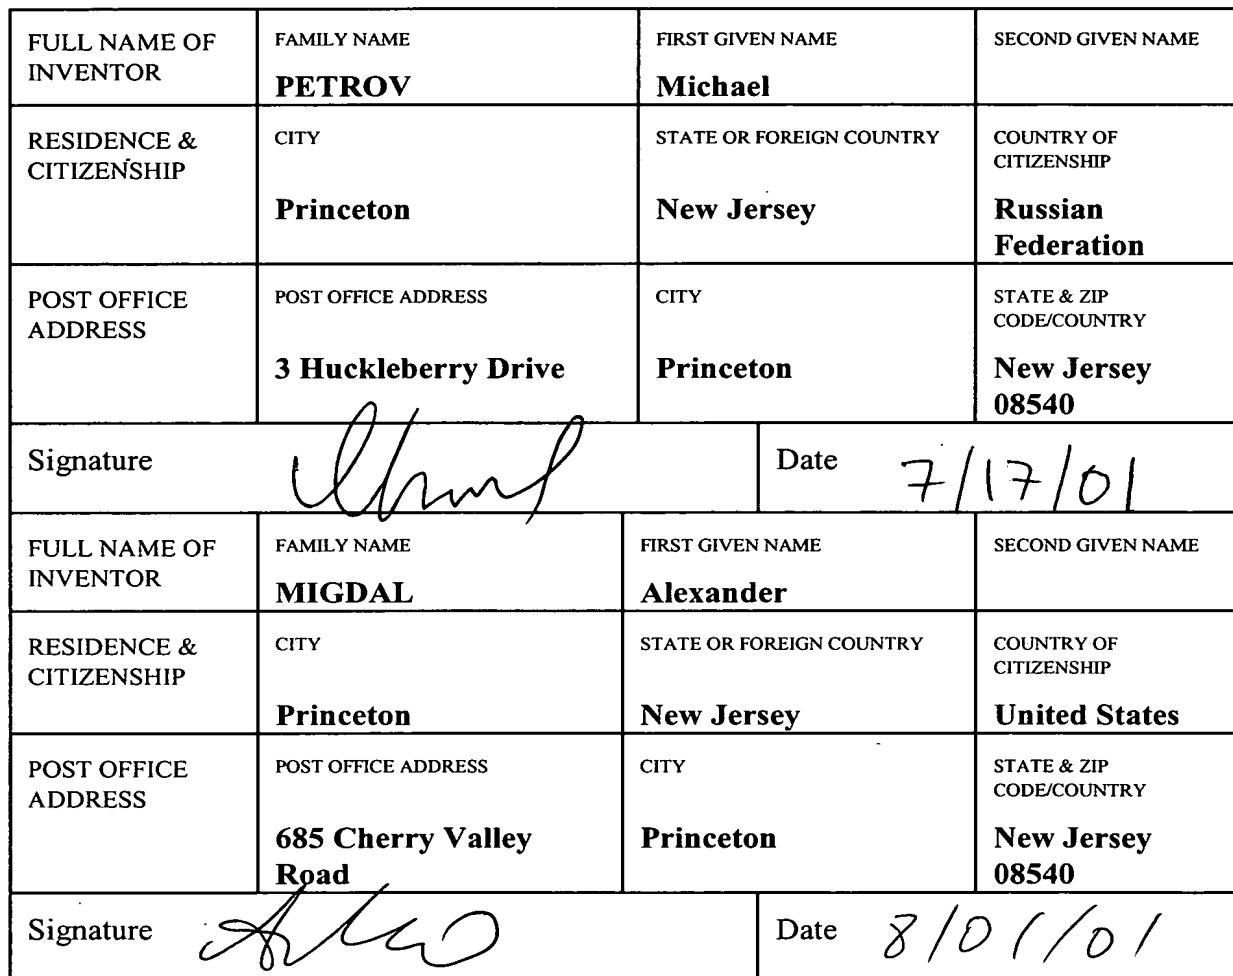 FULL NAME OF INVENTOR
FAMILY NAME
PETROV
FIRST GIVEN NAME
Michael
SECOND GIVEN NAME
RESIDENCE &
CITIZENSHIP
CITY
Princeton
STATE OR FOREIGN COUNTRY
New Jersey
COUNTRY OF
CITIZENSHIP
Russian
Federation
POST OFFICE
ADDRESS
POST OFFICE ADDRESS
3 Huckleberry Drive
CITY
Princeton
STATE & ZIP
CODE/COUNTRY
New Jersey
08540
Signature
Date 7/17/01
FULL NAME OF
INVENTOR
FAMILY NAME
MIGDAL
FIRST GIVEN NAME
Alexander
SECOND GIVEN NAME
RESIDENCE &
CITIZENSHIP
CITY
Princeton
STATE OR FOREIGN COUNTRY
New Jersey
COUNTRY OF
CITIZENSHIP
United States
POST OFFICE
ADDRESS
POST OFFICE ADDRESS
685 Cherry Valley
Road
CITY
Princeton
STATE & ZIP
CODE/COUNTRY
New Jersey
08540
Signature
Date 8/01/01